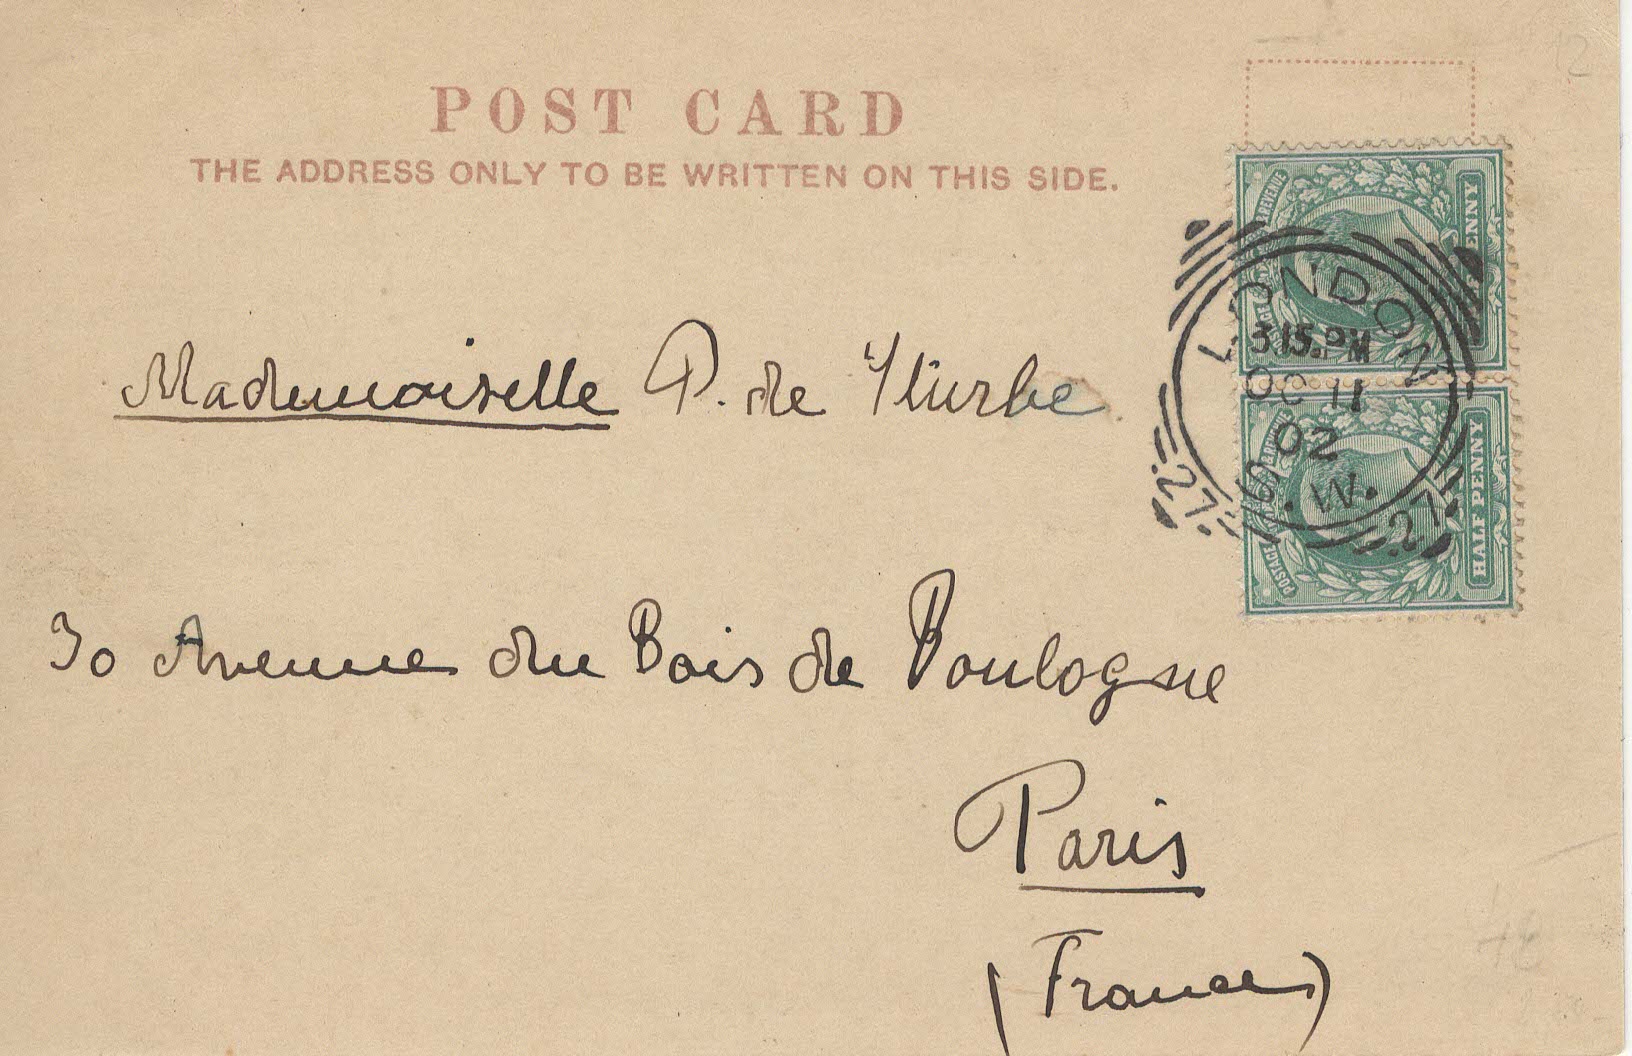 POST CARD
THE ADDRESS ONLY TO BE WRITTEN ON THIS SIDE.
Mademoiselle P. de
30 Avenue du Bois de Boulogne
Paris
(France)
PENNY
& REVENUE
LONDON
3.15.PM
OC 11
02
S.W.
27
27
POSTAGE & REVENUE
HALF PENNY
12